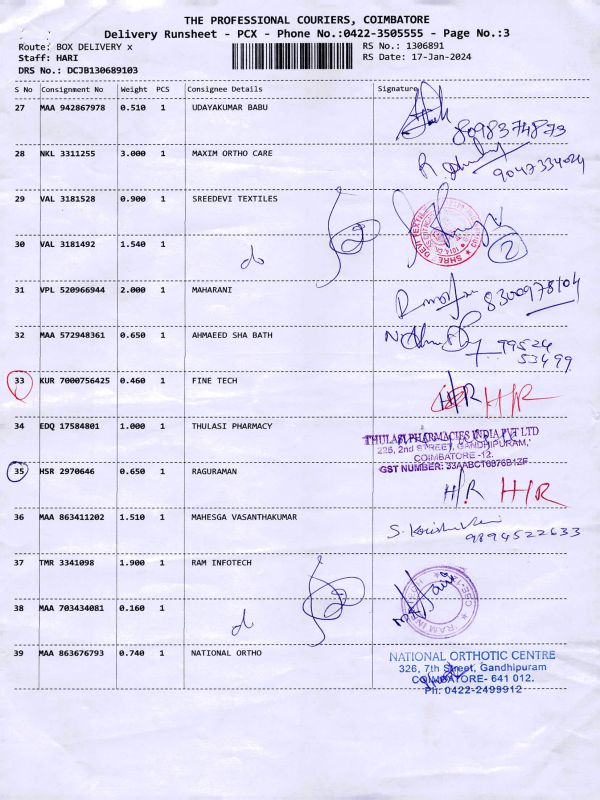 THE PROFESSIONAL COURIERS, COIMBATORE
Delivery Runsheet - PCX - Phone No.:0422-3505555 - Page No.:3
Route: BOX DELIVERY x RS No.: 1306891
Staff: HARI RS Date: 17-Jan-2024
DRS No.: DCJB130689103
S No Consignment No Weight PCS Consignee Details Signature
27 MAA 942867978 0.510 1 UDAYAKUMAR BABU
8098374873
28 NKL 3311255 3.000 1 MAXIM ORTHO CARE
9047334024
29 VAL 3181528 0.900 1 SREEDEVI TEXTILES
30 VAL 3181492 1.540 1 do 2
31 VPL 520966944 2.000 1 MAHARANI
8300978104
32 MAA 572948361 0.650 1 AHMAEED SHA BATH
99524
53499
33 KUR 7000756425 0.460 1 FINE TECH H/R H/R
34 EDQ 17584801 1.000 1 THULASI PHARMACY
THULASI PHARMACIES INDIA PVT LTD
226, 2nd STREET, GANDHIPURAM,
COIMBATORE -12.
GST NUMBER:
35 HSR 2970646 0.650 1 RAGURAMAN H/R H/R
36 MAA 863411202 1.510 1 MAHESGA VASANTHAKUMAR
9894522633
37 TMR 3341098 1.900 1 RAM INFOTECH
38 MAA 703434081 0.160 1 do
39 MAA 863676793 0.740 1 NATIONAL ORTHO
NATIONAL ORTHOTIC CENTRE
326, 7th Street, Gandhipuram
COIMBATORE- 641 012.
Ph: 0422-2499912